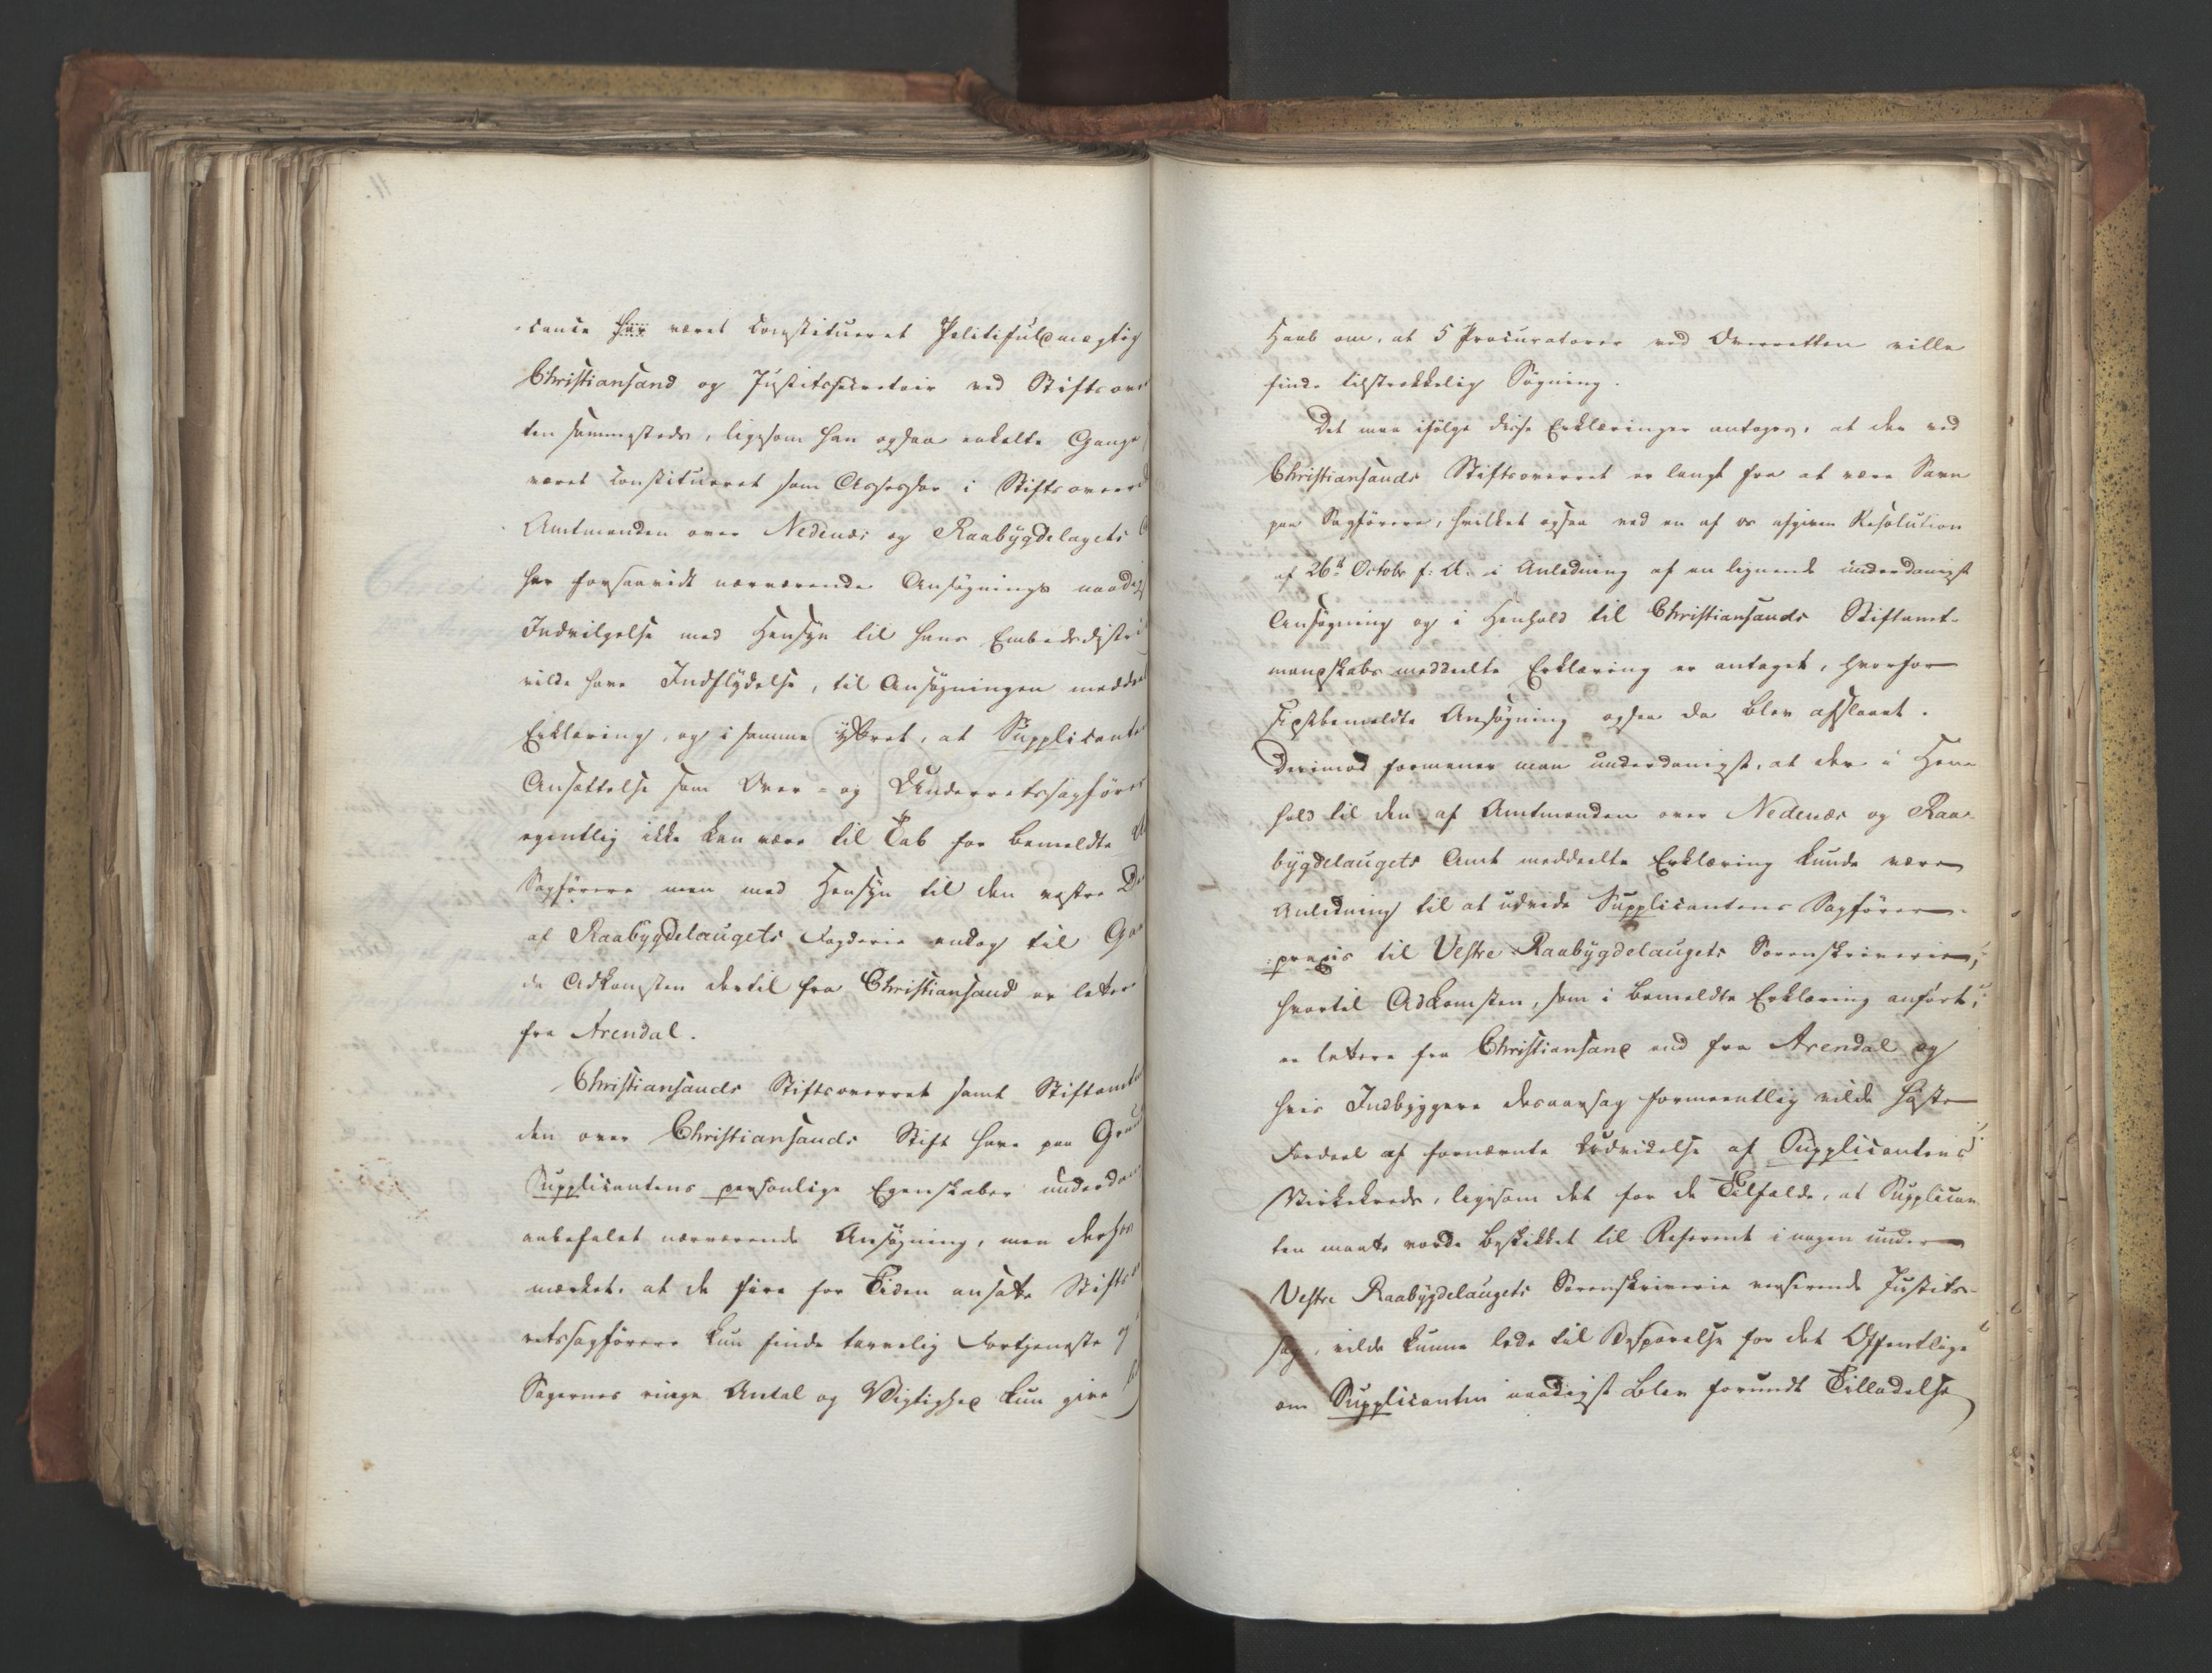 -cante har været constitueret Politifuldmægtig
Christiansand og Justitssecretair ved Stiftsover
ten sammesteds, ligesom han ogsaa enkelte Gange
været constitueret som Assessor i Stiftsoverr
Amtmanden over Nedenæs og Raabygdelagets
har forsaavidt nærværende Ansøgnings naadig
Indvilgelse med Hensyn til hans Embedsdistri
vilde have Indflydelse, til Ansøgningen meddeel
Erklæring, og i samme yttret, at Supplicante
Ansættelse som Over- og Underretssagfører
egentlig ikke kan være til Tab for bemeldte
Sagførere men med Hensyn til den vestre De
af Raabygdelaugets Fogderie endog til Ga
da Adkomsten dertil fra Christiansand er letter
fra Arendal.
Christiansands Stiftsoverret samt Stiftamt
den over Christiansands Stift have paa Grun
Supplicantens personlige Egenskaber underda
anbefalet nærværende Ansøgning, men derhos
mærket, at de fire for Tiden ansatte Stifts
retssagførere kun finde tarvelig Fortjeneste
Sagernes ringe Antal og Vigtighed kun give
Haab om, at 5 Procuratorer ved Overretten ville
finde tilstrækkelig Søgning.
Det maa ifølge disse Erklæringer antages, at der ved
Christiansands Stiftsoverret er langt fra at være Savn
paa Sagførere, hvilket ogsaa ved en af os afgiven Resolution
af 26de Octobr f: A. i Anledning af en lignende underdanigst
Ansøgning og i Henhold til Christiansands Stiftamt-
mandskabs meddeelte Erklæring er antaget, hvorfor
sidstbemeldte Ansøgning ogsaa da blev afslaaet.
Derimod formener man underdanigst, at der i Hen
hold til den af Amtmanden over Nedenæs og Raa-
bygdelaugets Amt meddeelte Erklæring kunde være
Anledning til at udvide Supplicantens Sagfører-
praxis til Vestre Raabygdelaugets Sorenskriverie,
hvortil Adkomsten, som i bemeldte Erklæring anført,
er lettere fra Christiansand end fra Arendal og
hvis Indbyggere desaarsag formeentlig vilde høste
Fordeel af fornævnte Udvidelse af Supplicantens
Virkekreds, ligesom det for de Tilfælde, at Supplican
ten maatte vorde beskikket til Referent i nogen under
Vestre Raabygdelaugets Sorenskriverie verserende Justits-
sag, vilde kunne lede til Besparelse for det Offentlige
om Supplicanten naadigst blev forundt Tilladelse